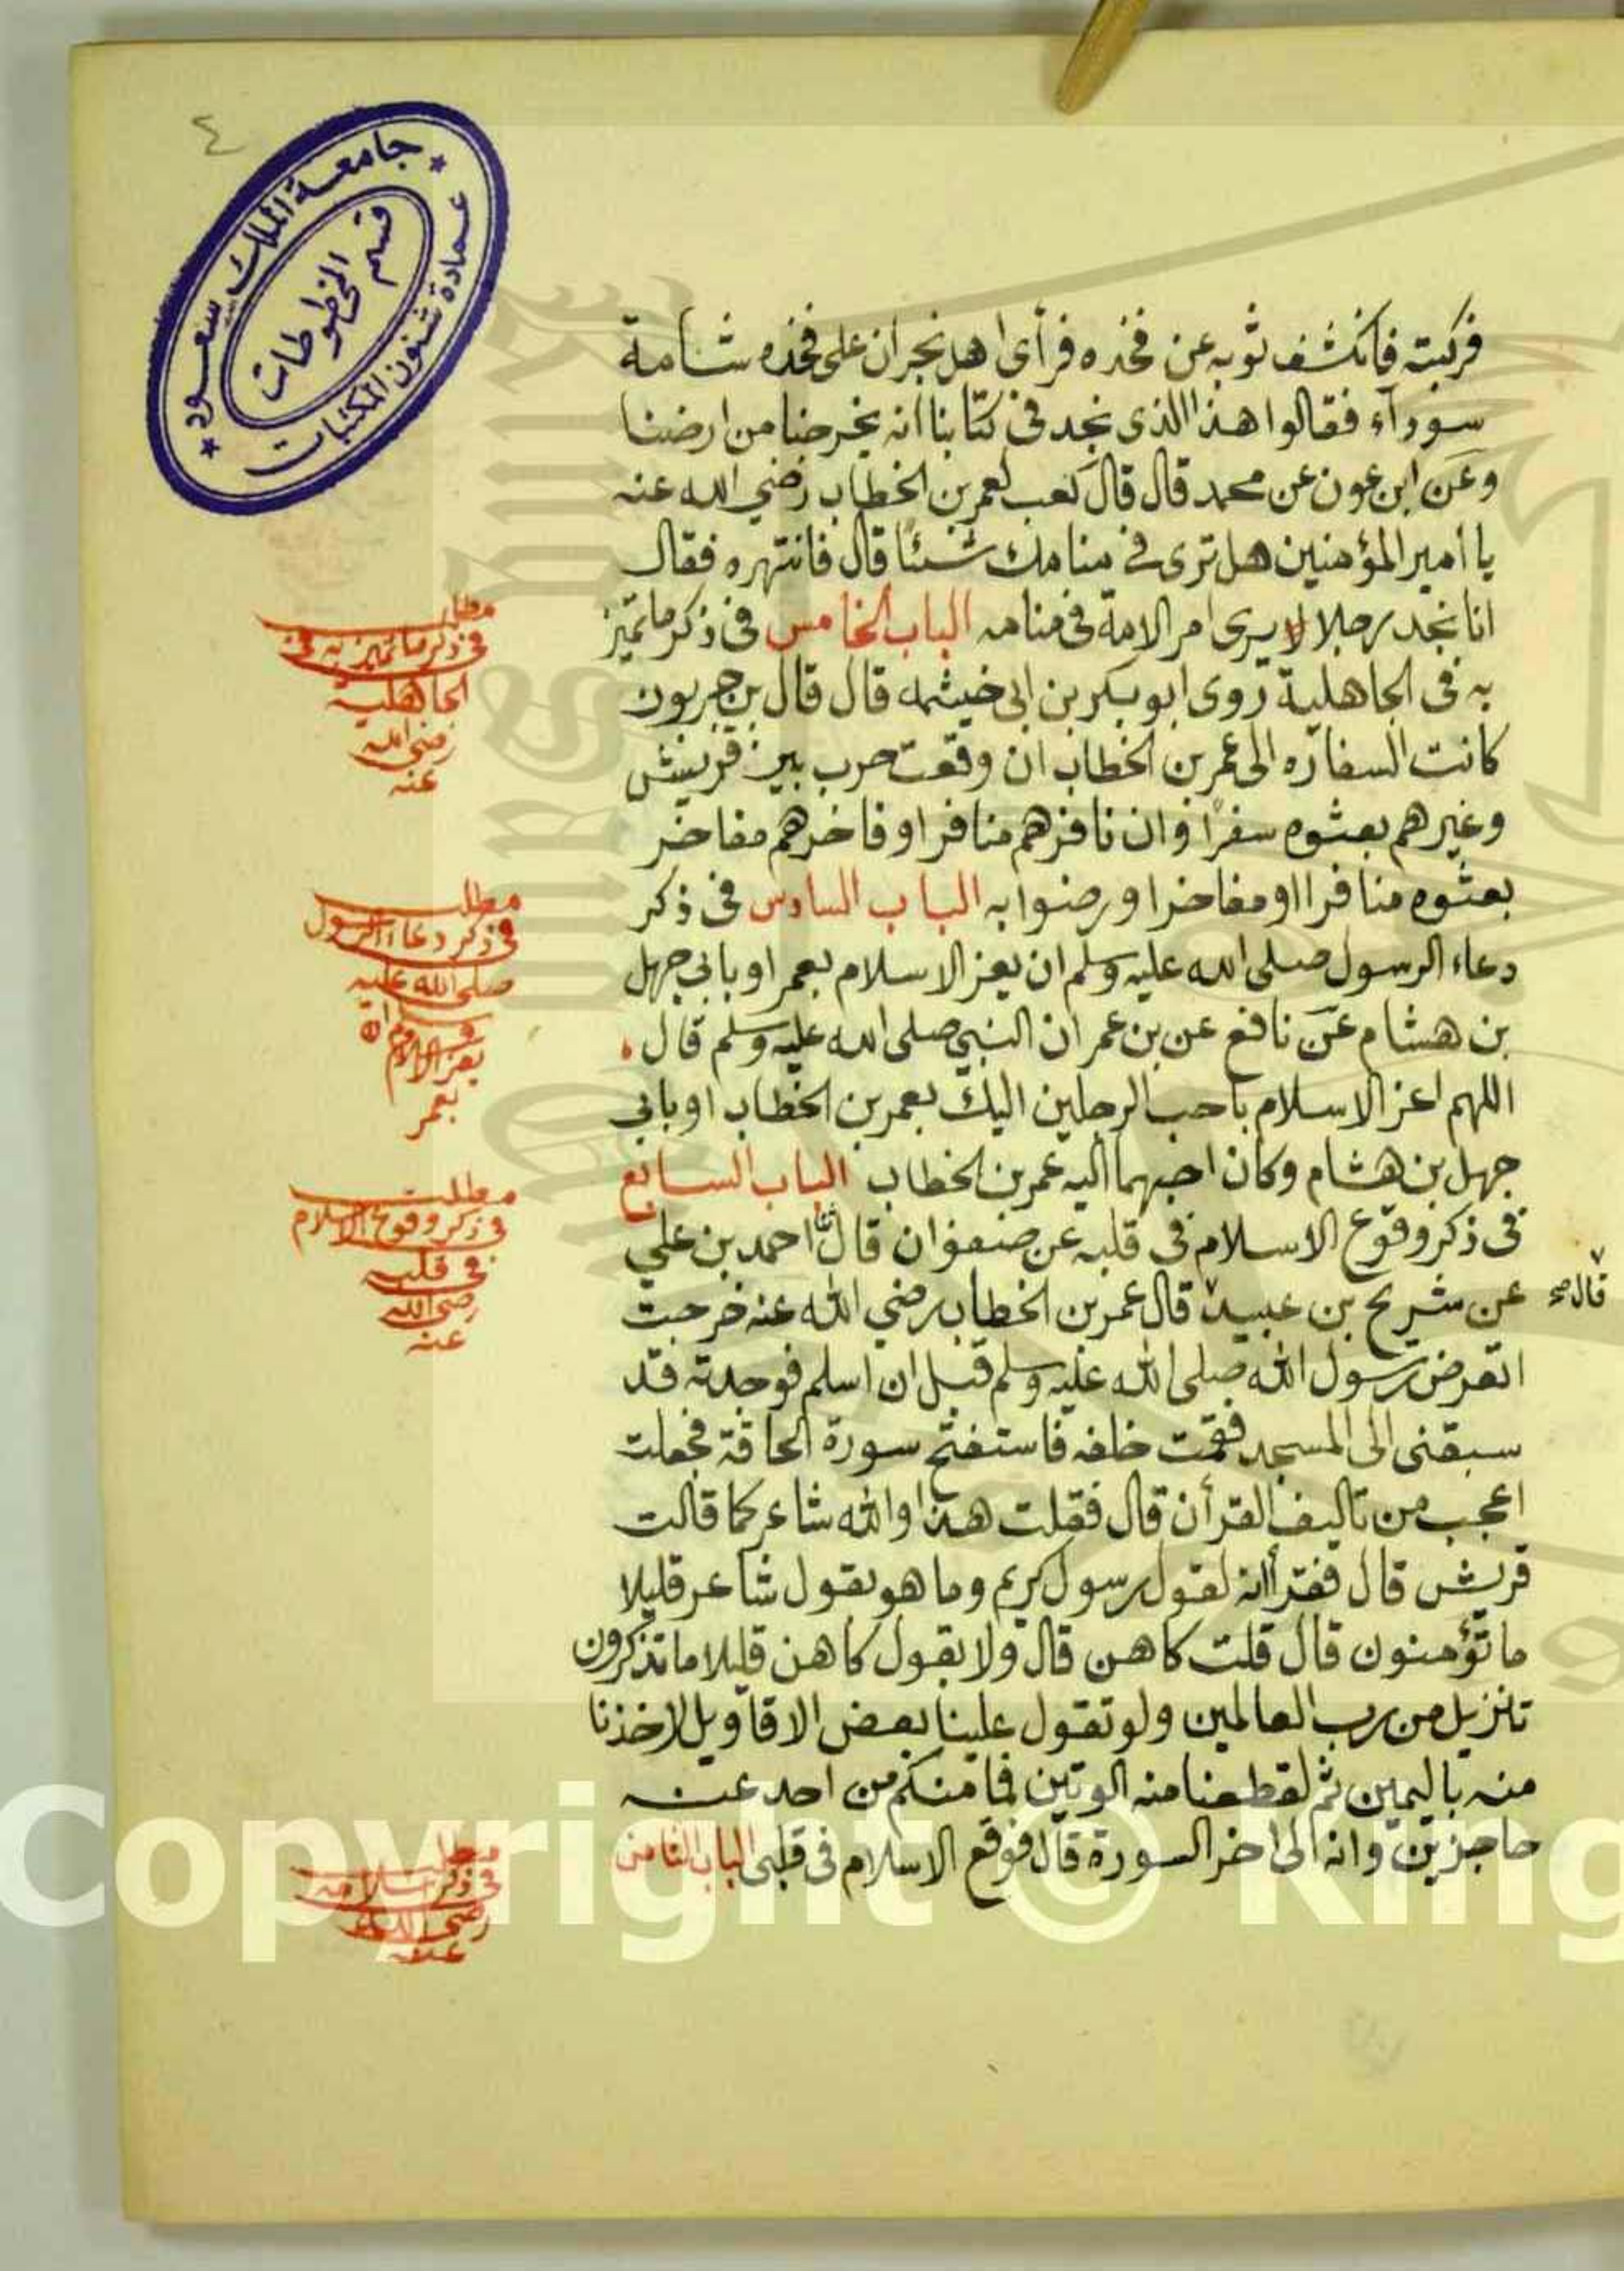 ٤
جامعة الملك سعود
قسم المخطوطات
عمادة شئون المكتبات
فركبته فانكشف ثوبه عن فخذه فرأى اهل نجران على فخذه شامة
سوداء فقالوا هذا الذى نجد فى كتابنا انه يخرجنا من ارضنا
وعن ابن عون عن محمد قال قال كعب لعمر بن الخطاب رضي الله عنه
يا امير المؤمنين هل ترى فى منامك شئا قال فانتهره فقال
انا نجد رجلا لا يرى امر الامة فى منامه الباب الخامس فى ذكر ما تميز
به فى الجاهلية روى ابو بكر بن ابى خيثمه قال قال بن
كانت السفاره الى عمر بن الخطاب ان وقعت حرب بين قريش
وغيرهم بعثوه سفرا وان نافرهم منافرا وفاخرهم مفاخر
بعثوه منافرا او مفاخرا ورضوا به الباب السادس فى ذكر
دعاء الرسول صلى الله عليه وسلم ان يعز الاسلام بعمر او بابى جهل
بن هشام عن نافع عن بن عمر ان النبي صلى الله عليه وسلم قال
اللهم اعز الاسلام باحب الرجلين اليك بعمر بن الخطاب او بابى
جهل بن هشام وكان احبهما اليه عمر بن الخطاب الباب السابع
فى ذكر وقوع الاسلام فى قلبه عن صفوان قال احمد بن علي
عن شريح بن عبيد قال عمر بن الخطاب رضي الله عنه خرجت
اتعرض رسول الله صلى الله عليه وسلم قبل ان اسلم فوجدته قد
سبقنى الى المسجد فقمت خلفه فاستفتح سورة الحاقة فجعلت
اعجب من تاليف القرأن قال فقلت هذا والله شاعر كما قالت
قريش قال فقرأ انه لقول رسول كريم وما هو بقول شاعر قليلا
ما تؤمنون قال قلت كاهن قال ولا بقول كاهن قليلا ما تذكرون
تنزيل من رب العالمين ولو تقول علينا بعض الاقاويل لاخذنا
منه باليمين ثم لقطعنا منه الوتين فما منكم من احد عنه
حاجزين وانه الى اخر السورة قال فوقع الاسلام فى قلبى الباب الثامن
مطلب
فى ذكر ما تميز به فى
الجاهلية
رضى الله
عنه
مطلب
فى ذكر دعاء الرسول
صلى الله عليه
وسلم ان
يعز الاسلام
بعمر
مطلب
فى ذكر وقوع الاسلام
فى قلبه
رضى الله
عنه
قال صح
مطلب
فى ذكر اسلامه
رضى الله
عنه
Copyright © King